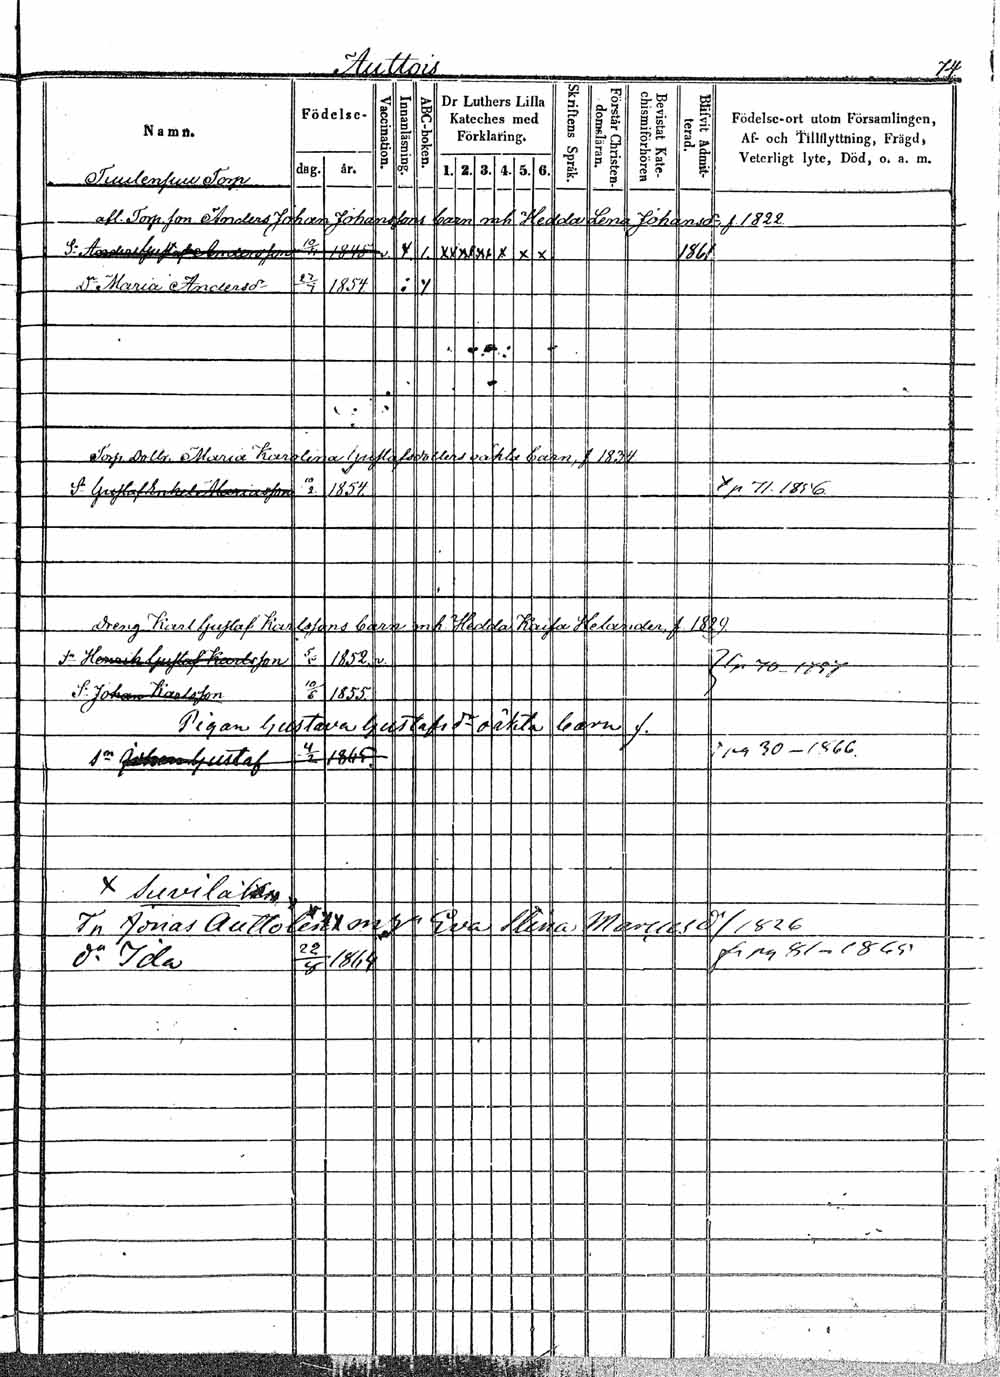 Auttois 74
Namn.
Födelse-
dag. år.
Vaccination.
Innanläsning.
ABC-boken.
Dr Luthers Lilla Kateches med Förklaring.
1. 2. 3. 4. 5. 6.
Skriftens Språk.
Förstår Christendomsläran.
Bevistat Katechismiförhören
Blifvit Admitterad.
Födelse-ort utom Församlingen,
Af- och Tillflyttning, Frägd,
Veterligt lyte, Död, o. a. m.
Torp
afl. Torp. son Anders Johan Johanssons barn mh Hedda Lena Johansdr f 1822
S. Anders Gustaf Andersson 1845 v. 4 1. x x x x x x x x 1861
Dr Maria Andersdr 27/7 1854
Torp. Dottr. Maria Karolina Gustafsdotters oäkta barn, f 1834
S. Gustaf Enkel Mariasson 1854. p 71. 1856.
Dreng Karl Gustaf Karlssons barn mh Hedda Kaisa Helander, f 1829
S. Henrik Gustaf Karlsson 1852 v.
S. Johan Karlsson 10/6 1855.
Pigan Gustava Gustafsdr oäkta barn f.
Sn Johan Gustaf 4/2 1865. pg 30 - 1866.
x Suvilä
Tn Jonas Eva Stina Marcusdr f 1826
Da Ida 22/8 1864 fr pg 81 - 1865